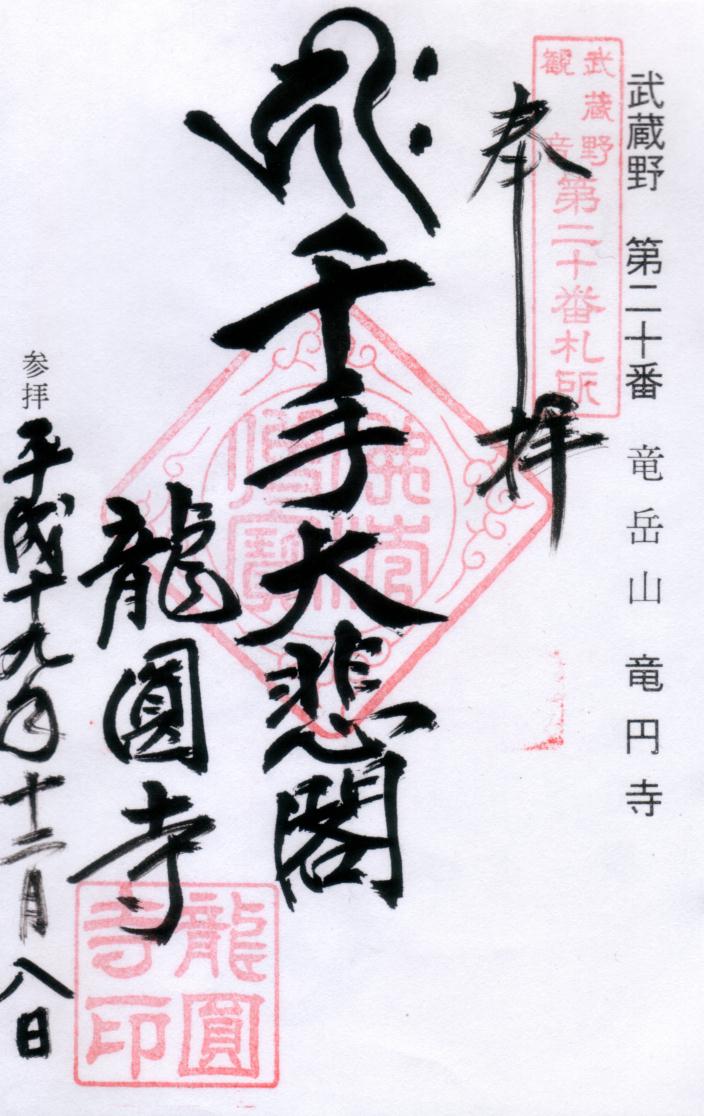 武蔵野 第二十番 竜岳山 竜円寺
武蔵野
観音
第二十番札所
奉拝
千手大悲閣
龍圓寺
龍圓
寺印
参拝 平成十九年十二月八日